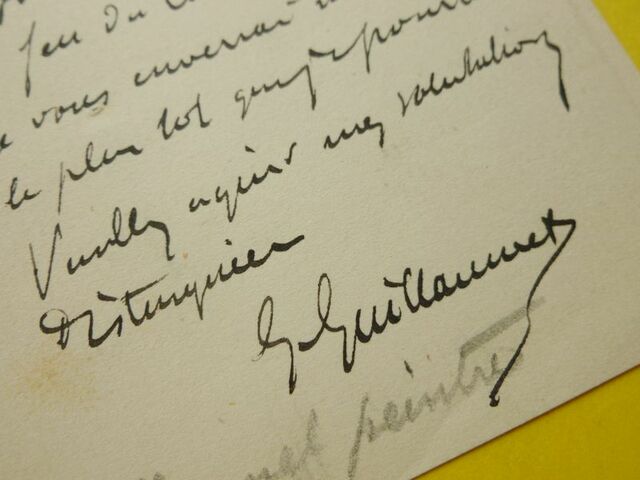 feu du
vous enverrai
le plus tôt que je pourrai
Veuillez agréer mes salutations
Distinguées
G Guillaumet
met peintre